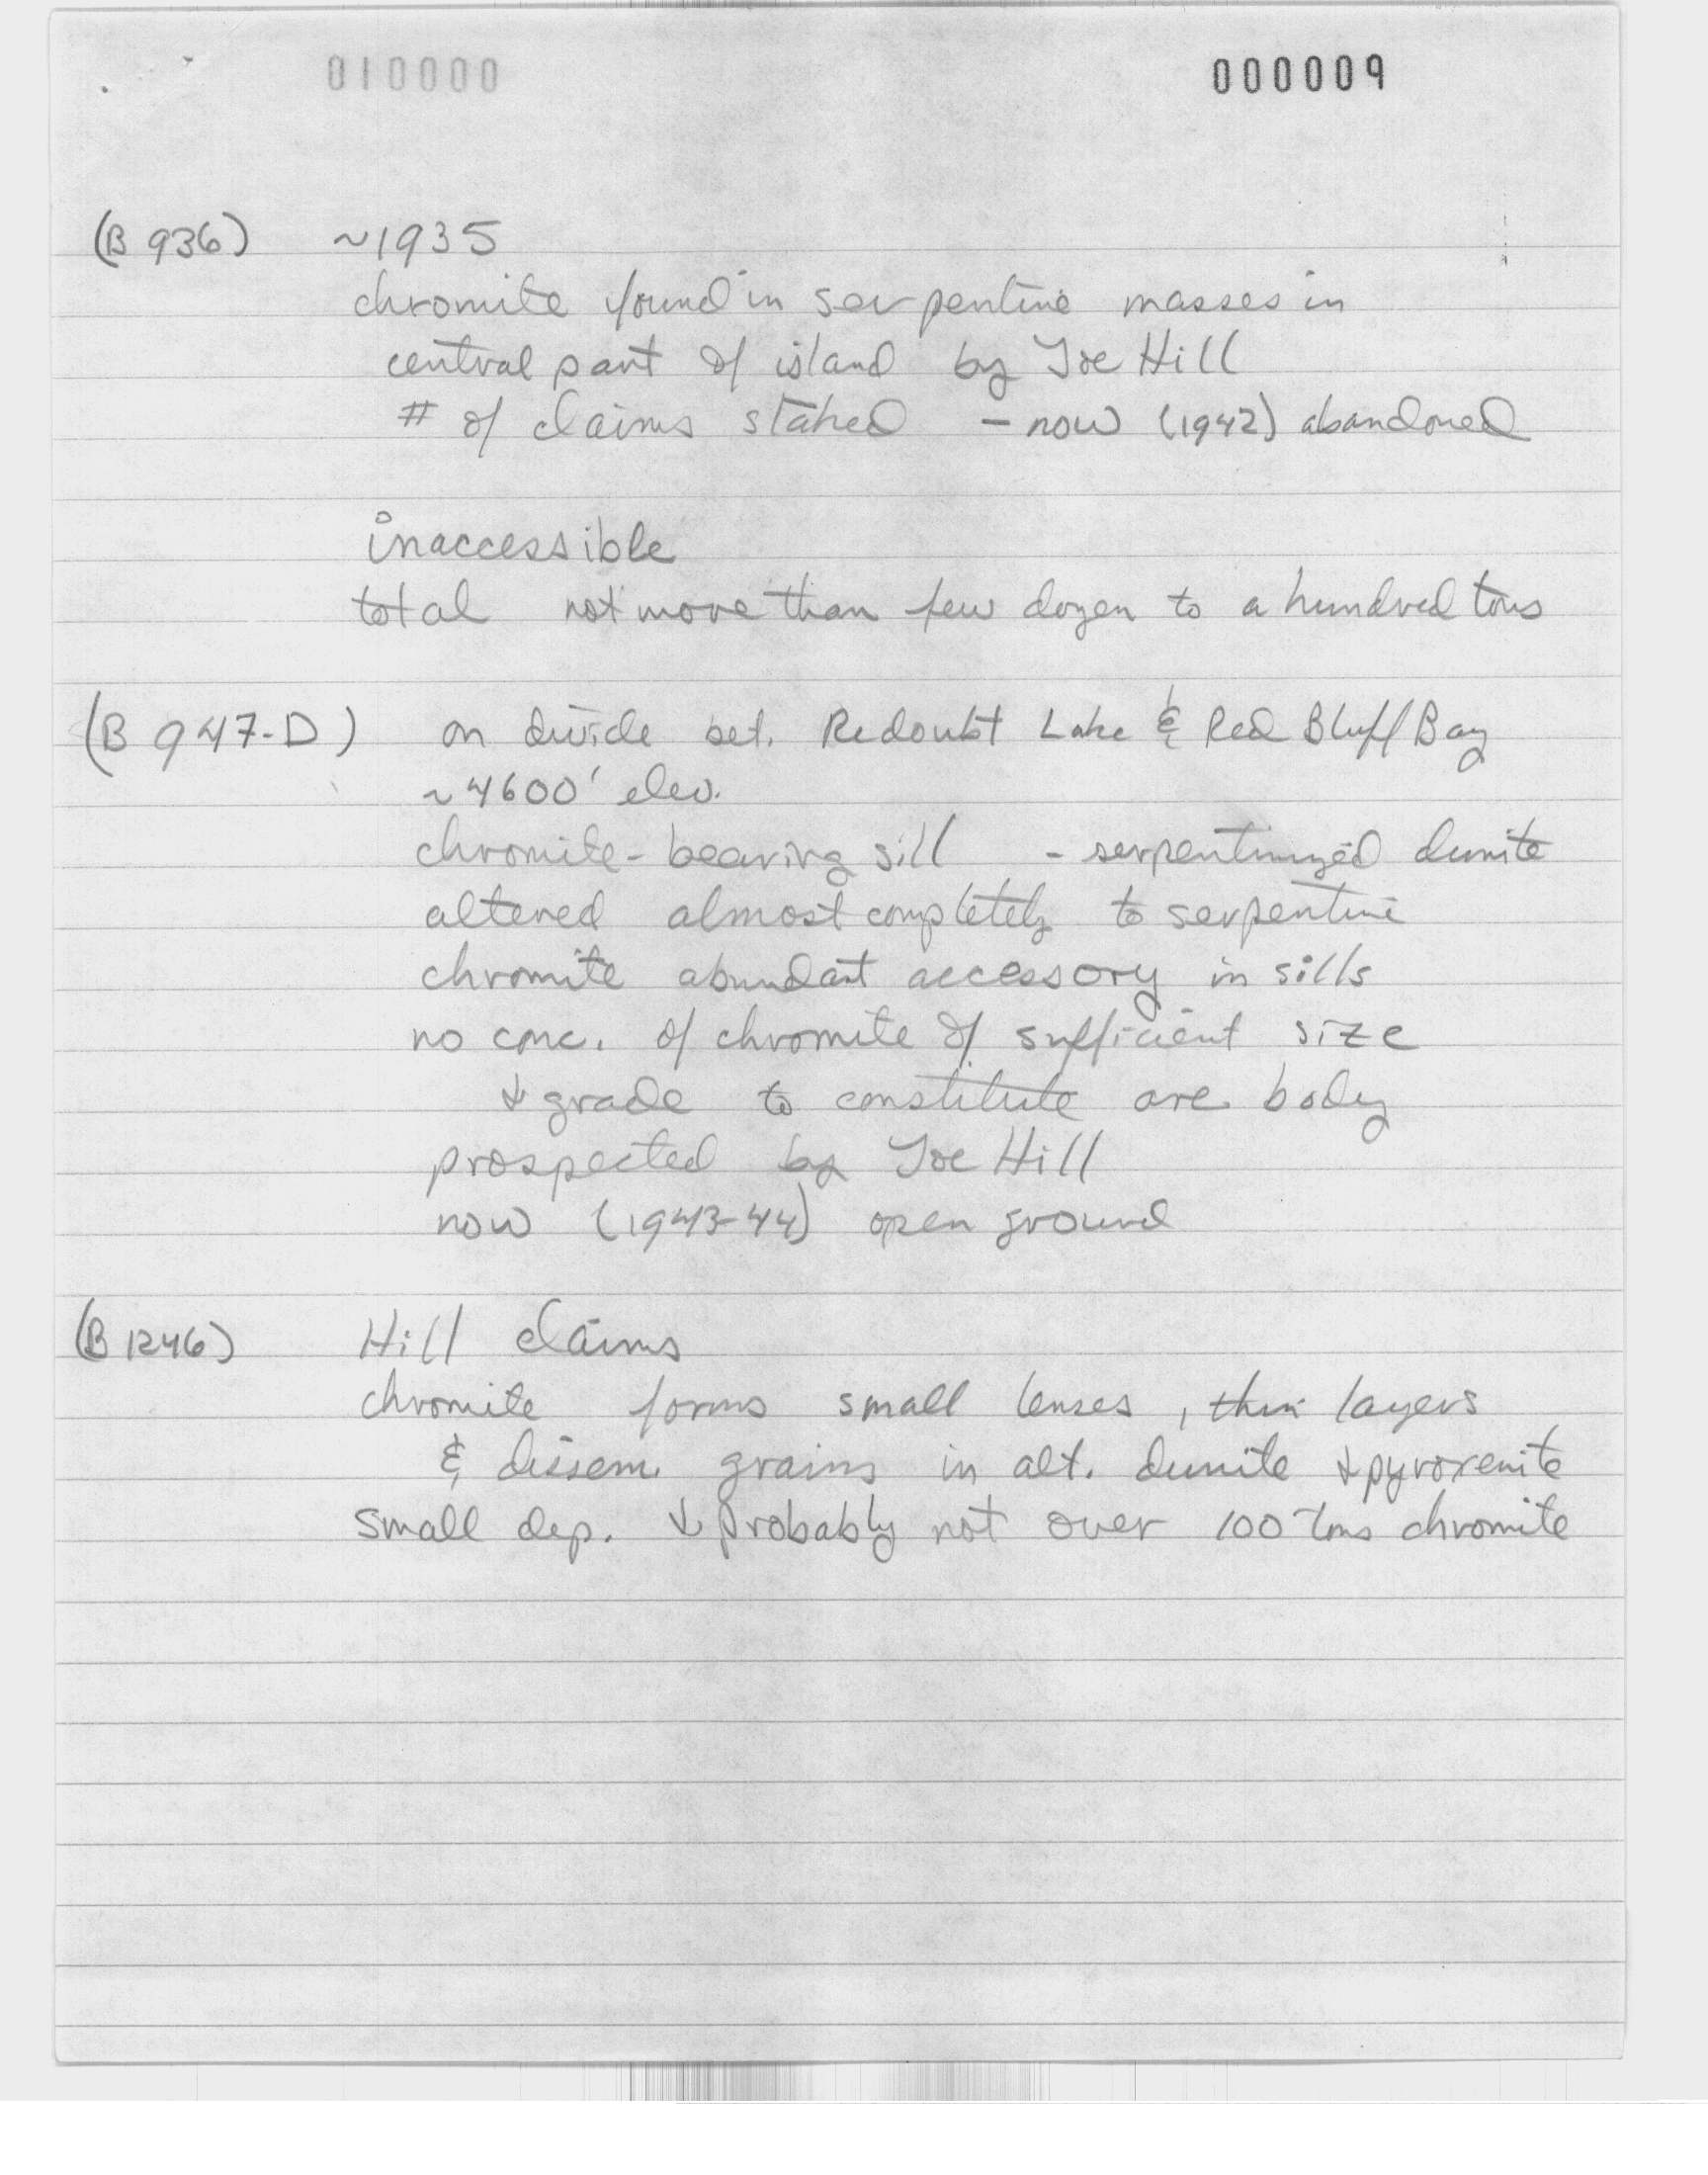 010000 000009
(B 936) ~1935
chromite found in serpentine masses in
central part of island by Joe Hill
# of claims staked - now (1942) abandoned
inaccessible
total not more than few dozen to a hundred tons
(B 947-D) on divide bet. Redoubt Lake & Red Bluff Bay
~4600' elev.
chromite-bearing sill - serpentinized dunite
altered almost completely to serpentine
chromite abundant accessory in sills
no conc. of chromite of sufficient size
& grade to constitute ore body
prospected by Joe Hill
now (1943-44) open ground
(B 1246) Hill claims
chromite forms small lenses, thin layers
& dissem. grains in alt. dunite & pyroxenite
small dep. & probably not over 100 tons chromite